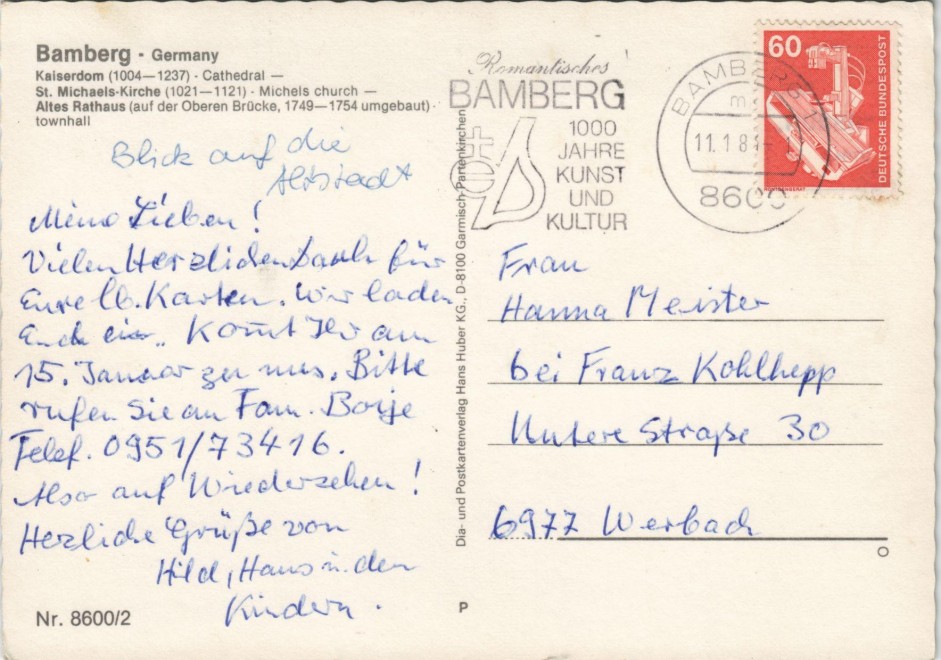 Bamberg · Germany
Kaiserdom (1004—1237) · Cathedral —
St. Michaels-Kirche (1021—1121) · Michels church —
Altes Rathaus (auf der Oberen Brücke, 1749—1754 umgebaut) ·
townhall
Blick auf die
Altstadt
Meine Lieben!
Vielen Herzlichen Dank für
Eure lb. Karten. Wir laden
Euch ein.. Komt Ihr am
15. Januar zu uns. Bitte
rufen Sie an Fam. Borje
Telef. 0951/73416.
Also auf Wiedersehen!
Herzliche Grüße von
Hild, Hans u. den
Kindern.
Nr. 8600/2
Dia- und Postkartenverlag Hans Huber KG., D-8100 Garmisch-Partenkirchen
P
Romantisches
BAMBERG
1000
JAHRE
KUNST
UND
KULTUR
BAMBERG 1
m
11.1.8
8600
60
DEUTSCHE BUNDESPOST
Frau
Hanna Meister
bei Franz Kohlhepp
Untere Straße 30
6977 Werbach